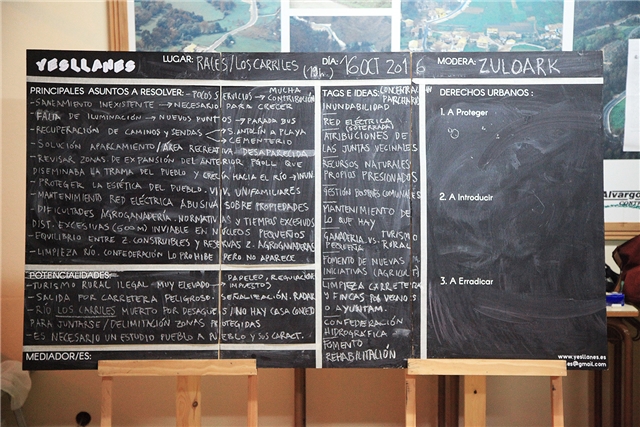 YESLLANES
LUGAR: RALES/LOS CARRILES (19h.)
DÍA: 16 OCT 2016
MODERA: ZULOARK
PRINCIPALES ASUNTOS A RESOLVER: - POCOS SERVICIOS → MUCHA CONTRIBUCIÓN
- SANEAMIENTO INEXISTENTE → NECESARIO PARA CRECER
- FALTA DE ILUMINACIÓN → NUEVOS PUNTOS → PARADA BUS
- RECUPERACIÓN DE CAMINOS Y SENDAS → S. ANTOLÍN A PLAYA
→ CEMENTERIO
- SOLUCIÓN APARCAMIENTO/ÁREA RECREATIVA DESAPARECIDA
- REVISAR ZONAS DE EXPANSIÓN DEL ANTERIOR PGOLL QUE
DISEMINABA LA TRAMA DEL PUEBLO Y CRECÍA HACIA EL RÍO → INUN.
- PROTEGER LA ESTÉTICA DEL PUEBLO. VIV. UNIFAMILIARES
- MANTENIMIENTO RED ELÉCTRICA ABUSIVA SOBRE PROPIEDADES
- DIFICULTADES AGROGANADERÍA NORMATIVAS Y TIEMPOS EXCESIVOS
DIST. EXCESIVAS (500m) INVIABLE EN NÚCLEOS PEQUEÑOS
- EQUILIBRIO ENTRE Z. CONSTRUIBLES Y RESERVAS Z. AGROGANADERAS
- LIMPIEZA RÍO. CONFEDERACIÓN LO PROHIBE PERO NO APARECE
POTENCIALIDADES:
PAPELEO, REGULACIÓN
- TURISMO RURAL ILEGAL MUY ELEVADO → IMPUESTOS
- SALIDA POR CARRETERA PELIGROSO. SEÑALIZACIÓN. RADAR
- RÍO LOS CARRILES MUERTO POR DESAGÜES / NO HAY CASA CONCEJO
PARA JUNTARSE / DELIMITACIÓN ZONAS PROTEGIDAS
- ES NECESARIO UN ESTUDIO PUEBLO A PUEBLO Y SUS CARACT.
MEDIADOR/ES:
TAGS E IDEAS: CONCENTRAC. PARCELARIA
INUNDABILIDAD
RED ELÉCTRICA
(SOTERRADA)
ATRIBUCIONES DE
LAS JUNTAS VECINALES
RECURSOS NATURALES
PROPIOS PRESIONADOS
GESTIÓN BOSQUES COMUNALES
MANTENIMIENTO DE
LO QUE HAY
GANADERÍA VS. TURISMO
PEQUEÑA RURAL
FOMENTO DE NUEVAS
INICIATIVAS (AGRICULT.)
LIMPIEZA CARRETERA
Y FINCAS POR VECINOS
O AYUNTAM.
CONFEDERACIÓN
HIDROGRÁFICA
FOMENTO
REHABILITACIÓN
DERECHOS URBANOS:
1. A Proteger
2. A Introducir
3. A Erradicar
www.yesllanes.es
es@gmail.com
Alvargo